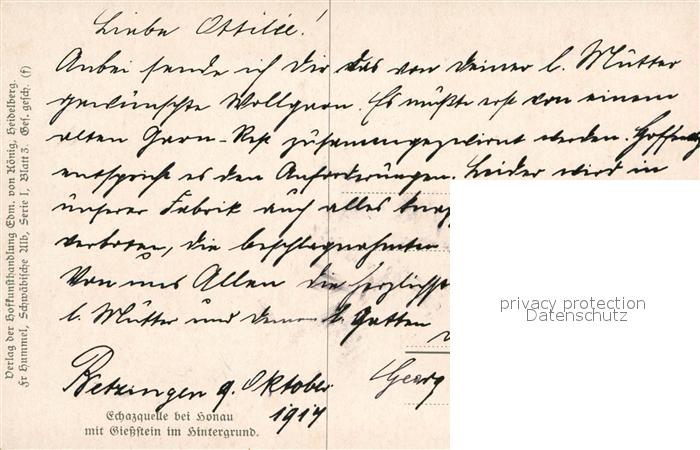 Liebe Ottilie!
Anbei sende ich Dir das von deiner l. Mutter
gewünschte Wollgarn. Es mußte erst von einem
alten Garn-Rest zusammengezwirnt werden. Hoffentl.
entspricht es den Anforderungen. Leider wird in
unserer Fabrik auch alles knapp
verboten, die beschlagnahmten
Von uns Allen die herzlichst
l. Mutter und deinen l. Gatten
Georg
Betzingen 9. Oktober
1917
Echazquelle bei Honau
mit Gießstein im Hintergrund.
Verlag der Hofkunsthandlung Edm. von König, Heidelberg.
Fr Hummel, Schwäbische Alb, Serie I, Blatt 3. Ges. gesch. (f)
privacy protection
Datenschutz